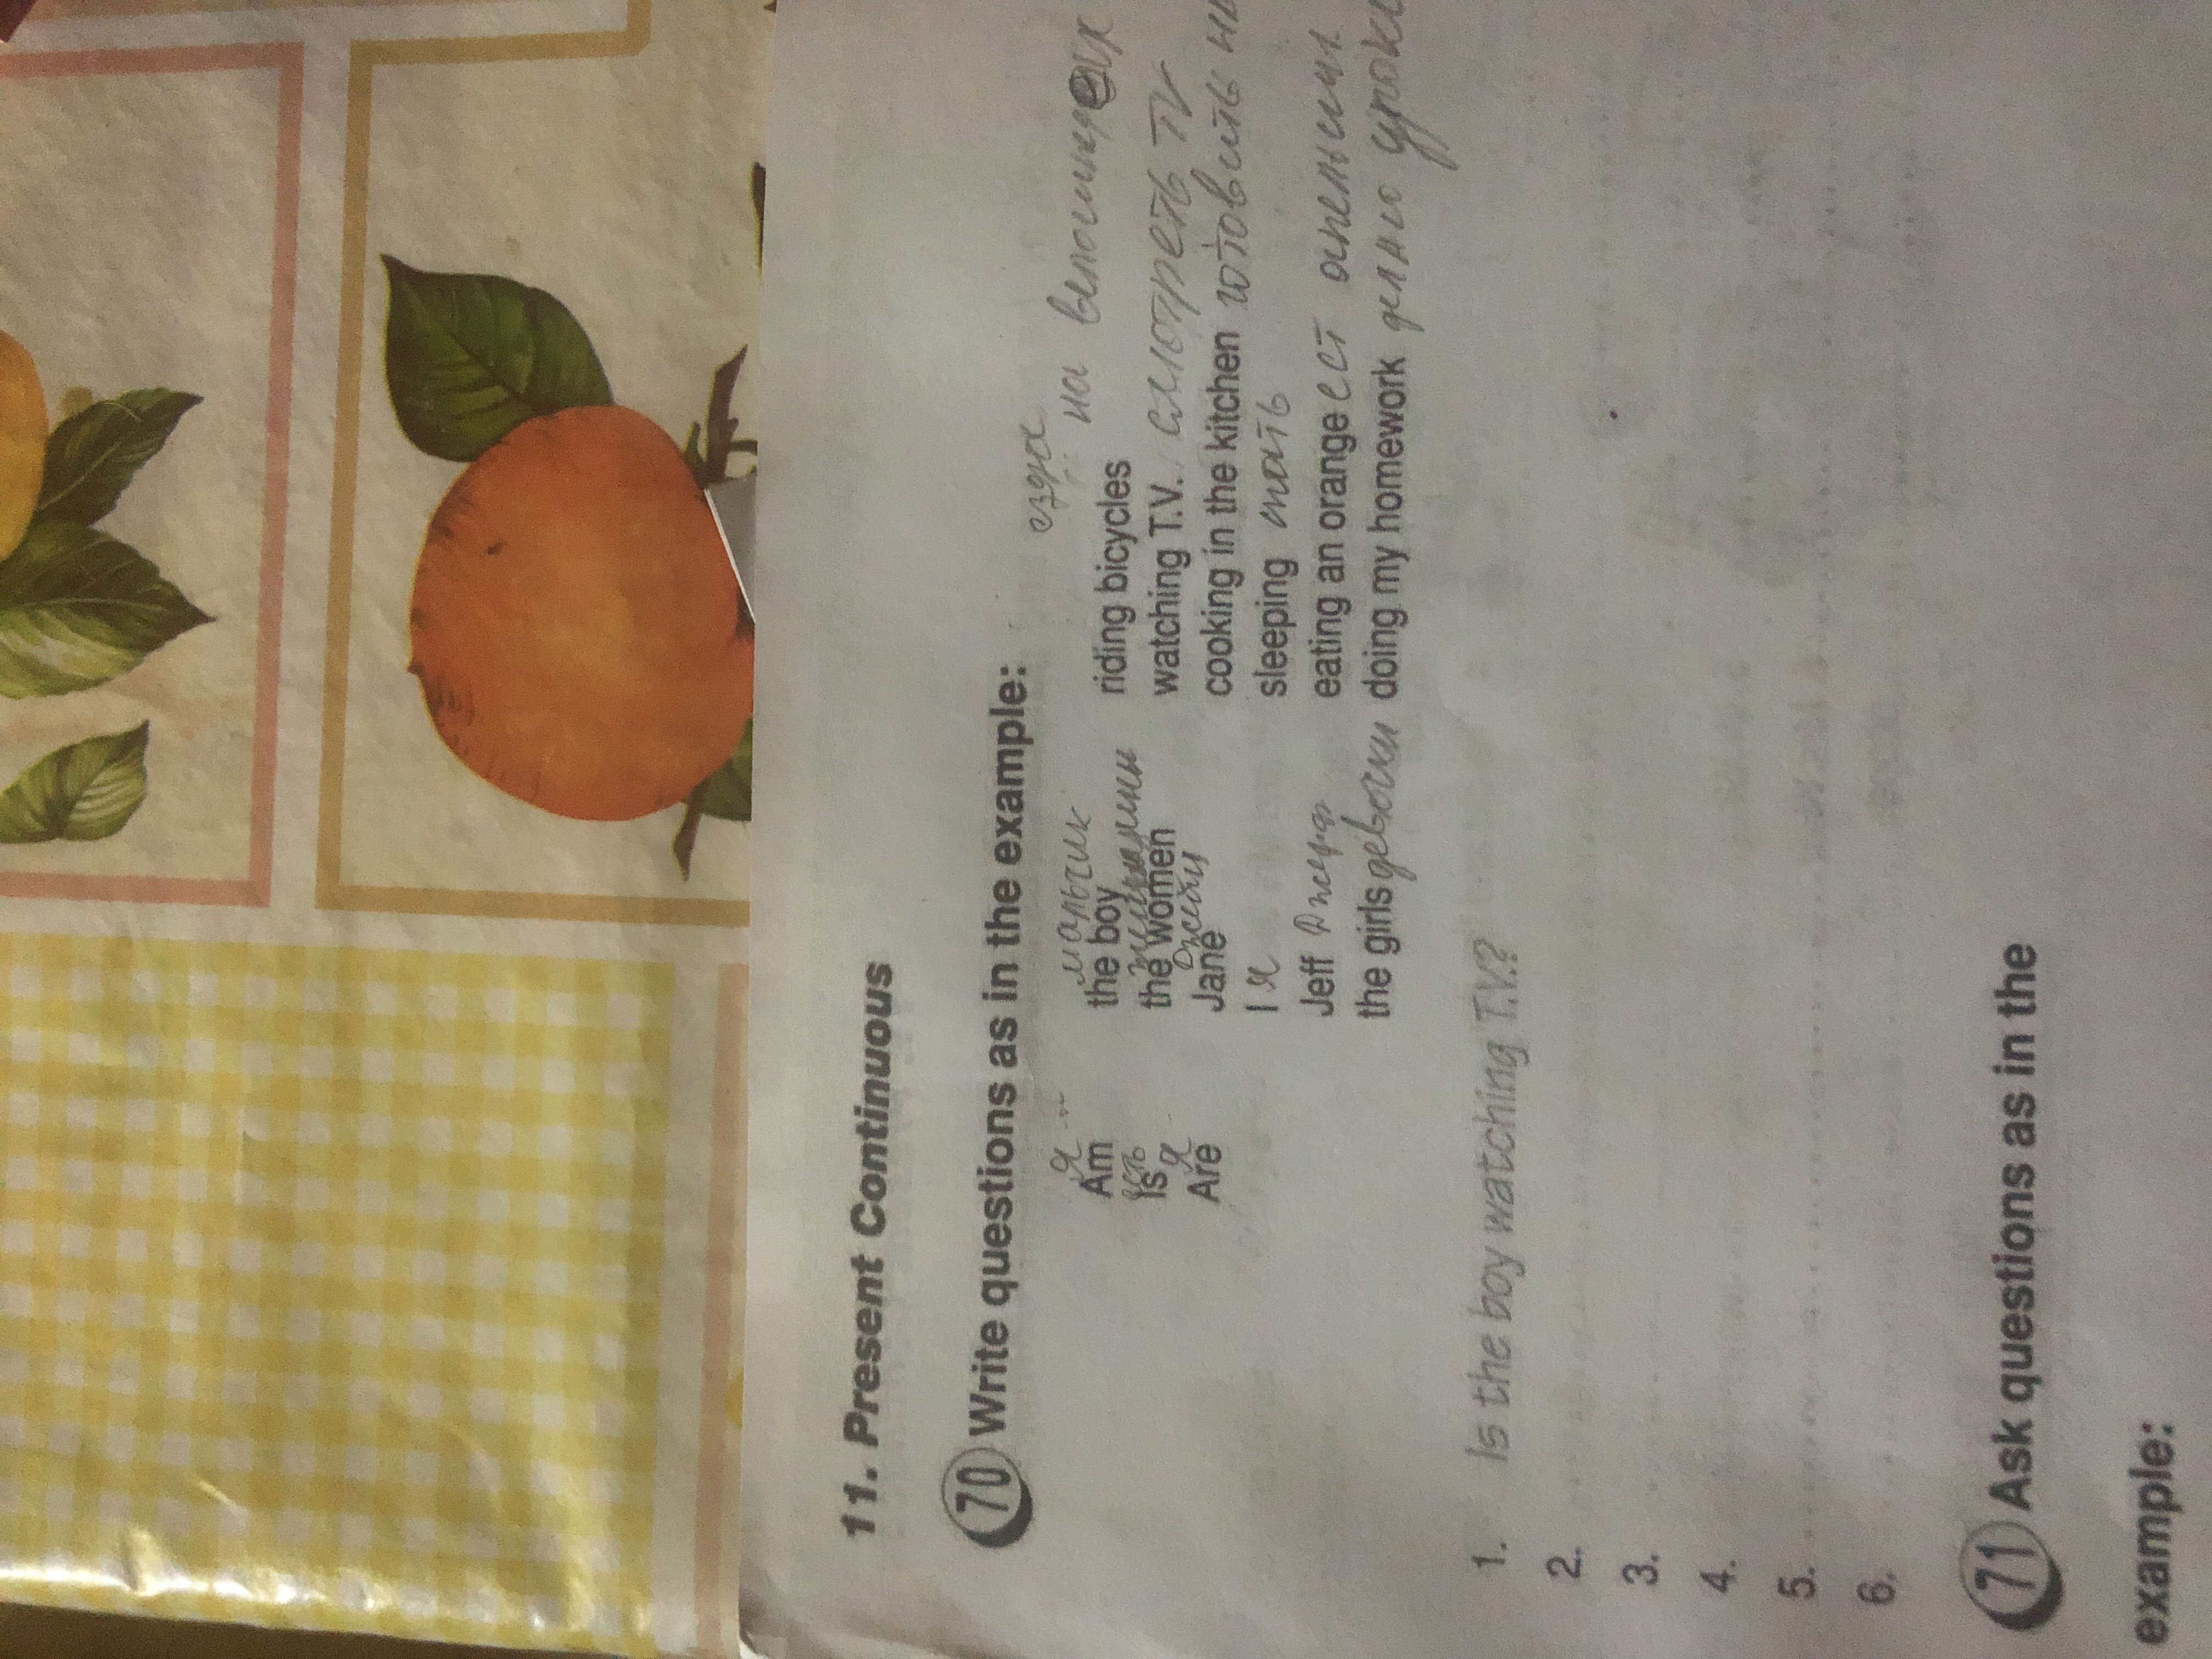 11. Present Continuous
70 Write questions as in the example:
езда
я мальчик на велосипедах
Am the boy riding bicycles
есть женщины
Is the women watching T.V. смотреть TV
я Джейн
Are Jane cooking in the kitchen готовить на
I я sleeping спать
Jeff Джефф eating an orange ест апельсин
the girls девочки doing my homework делаю уроки
1. Is the boy watching T.V.?
2.
3.
4.
5.
6.
71 Ask questions as in the
example: